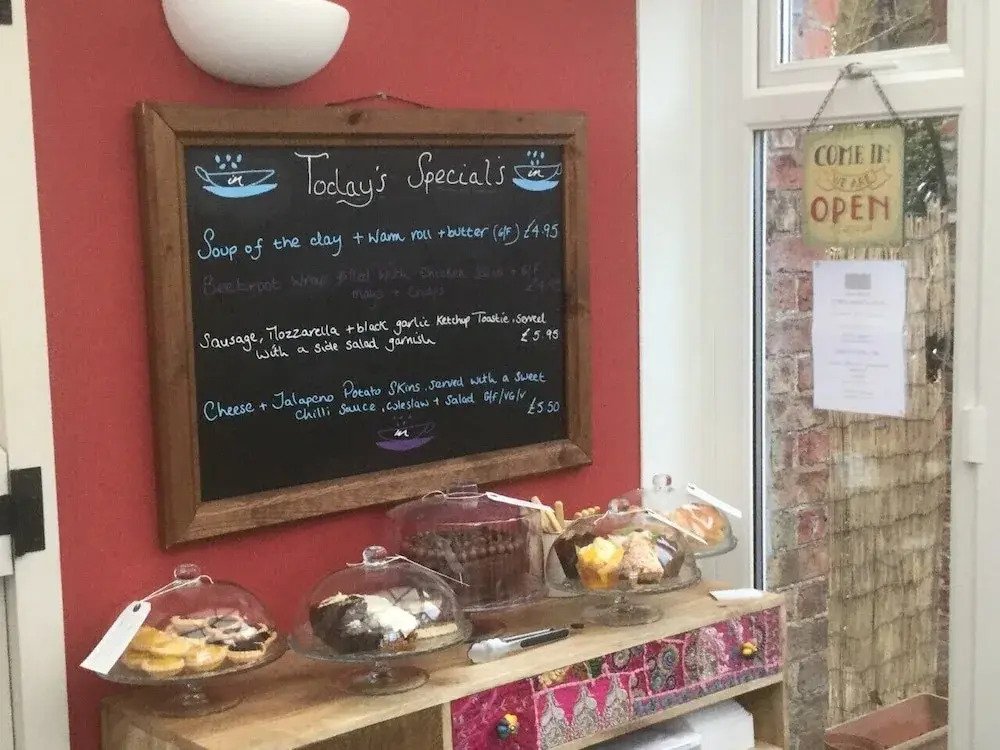 in Today's Special's in
Soup of the day + warm roll + butter (G/F) £4.95
Beetroot Wrap filled with Chicken
Mayo + Crisps
Sausage, Mozzarella + black garlic Ketchup Toastie, served
with a side salad garnish £5.95
Cheese + Jalapeno Potato Skins, served with a sweet
chilli sauce, coleslaw + salad G/F/VG/V £5.50
in
COME IN
WE ARE
OPEN